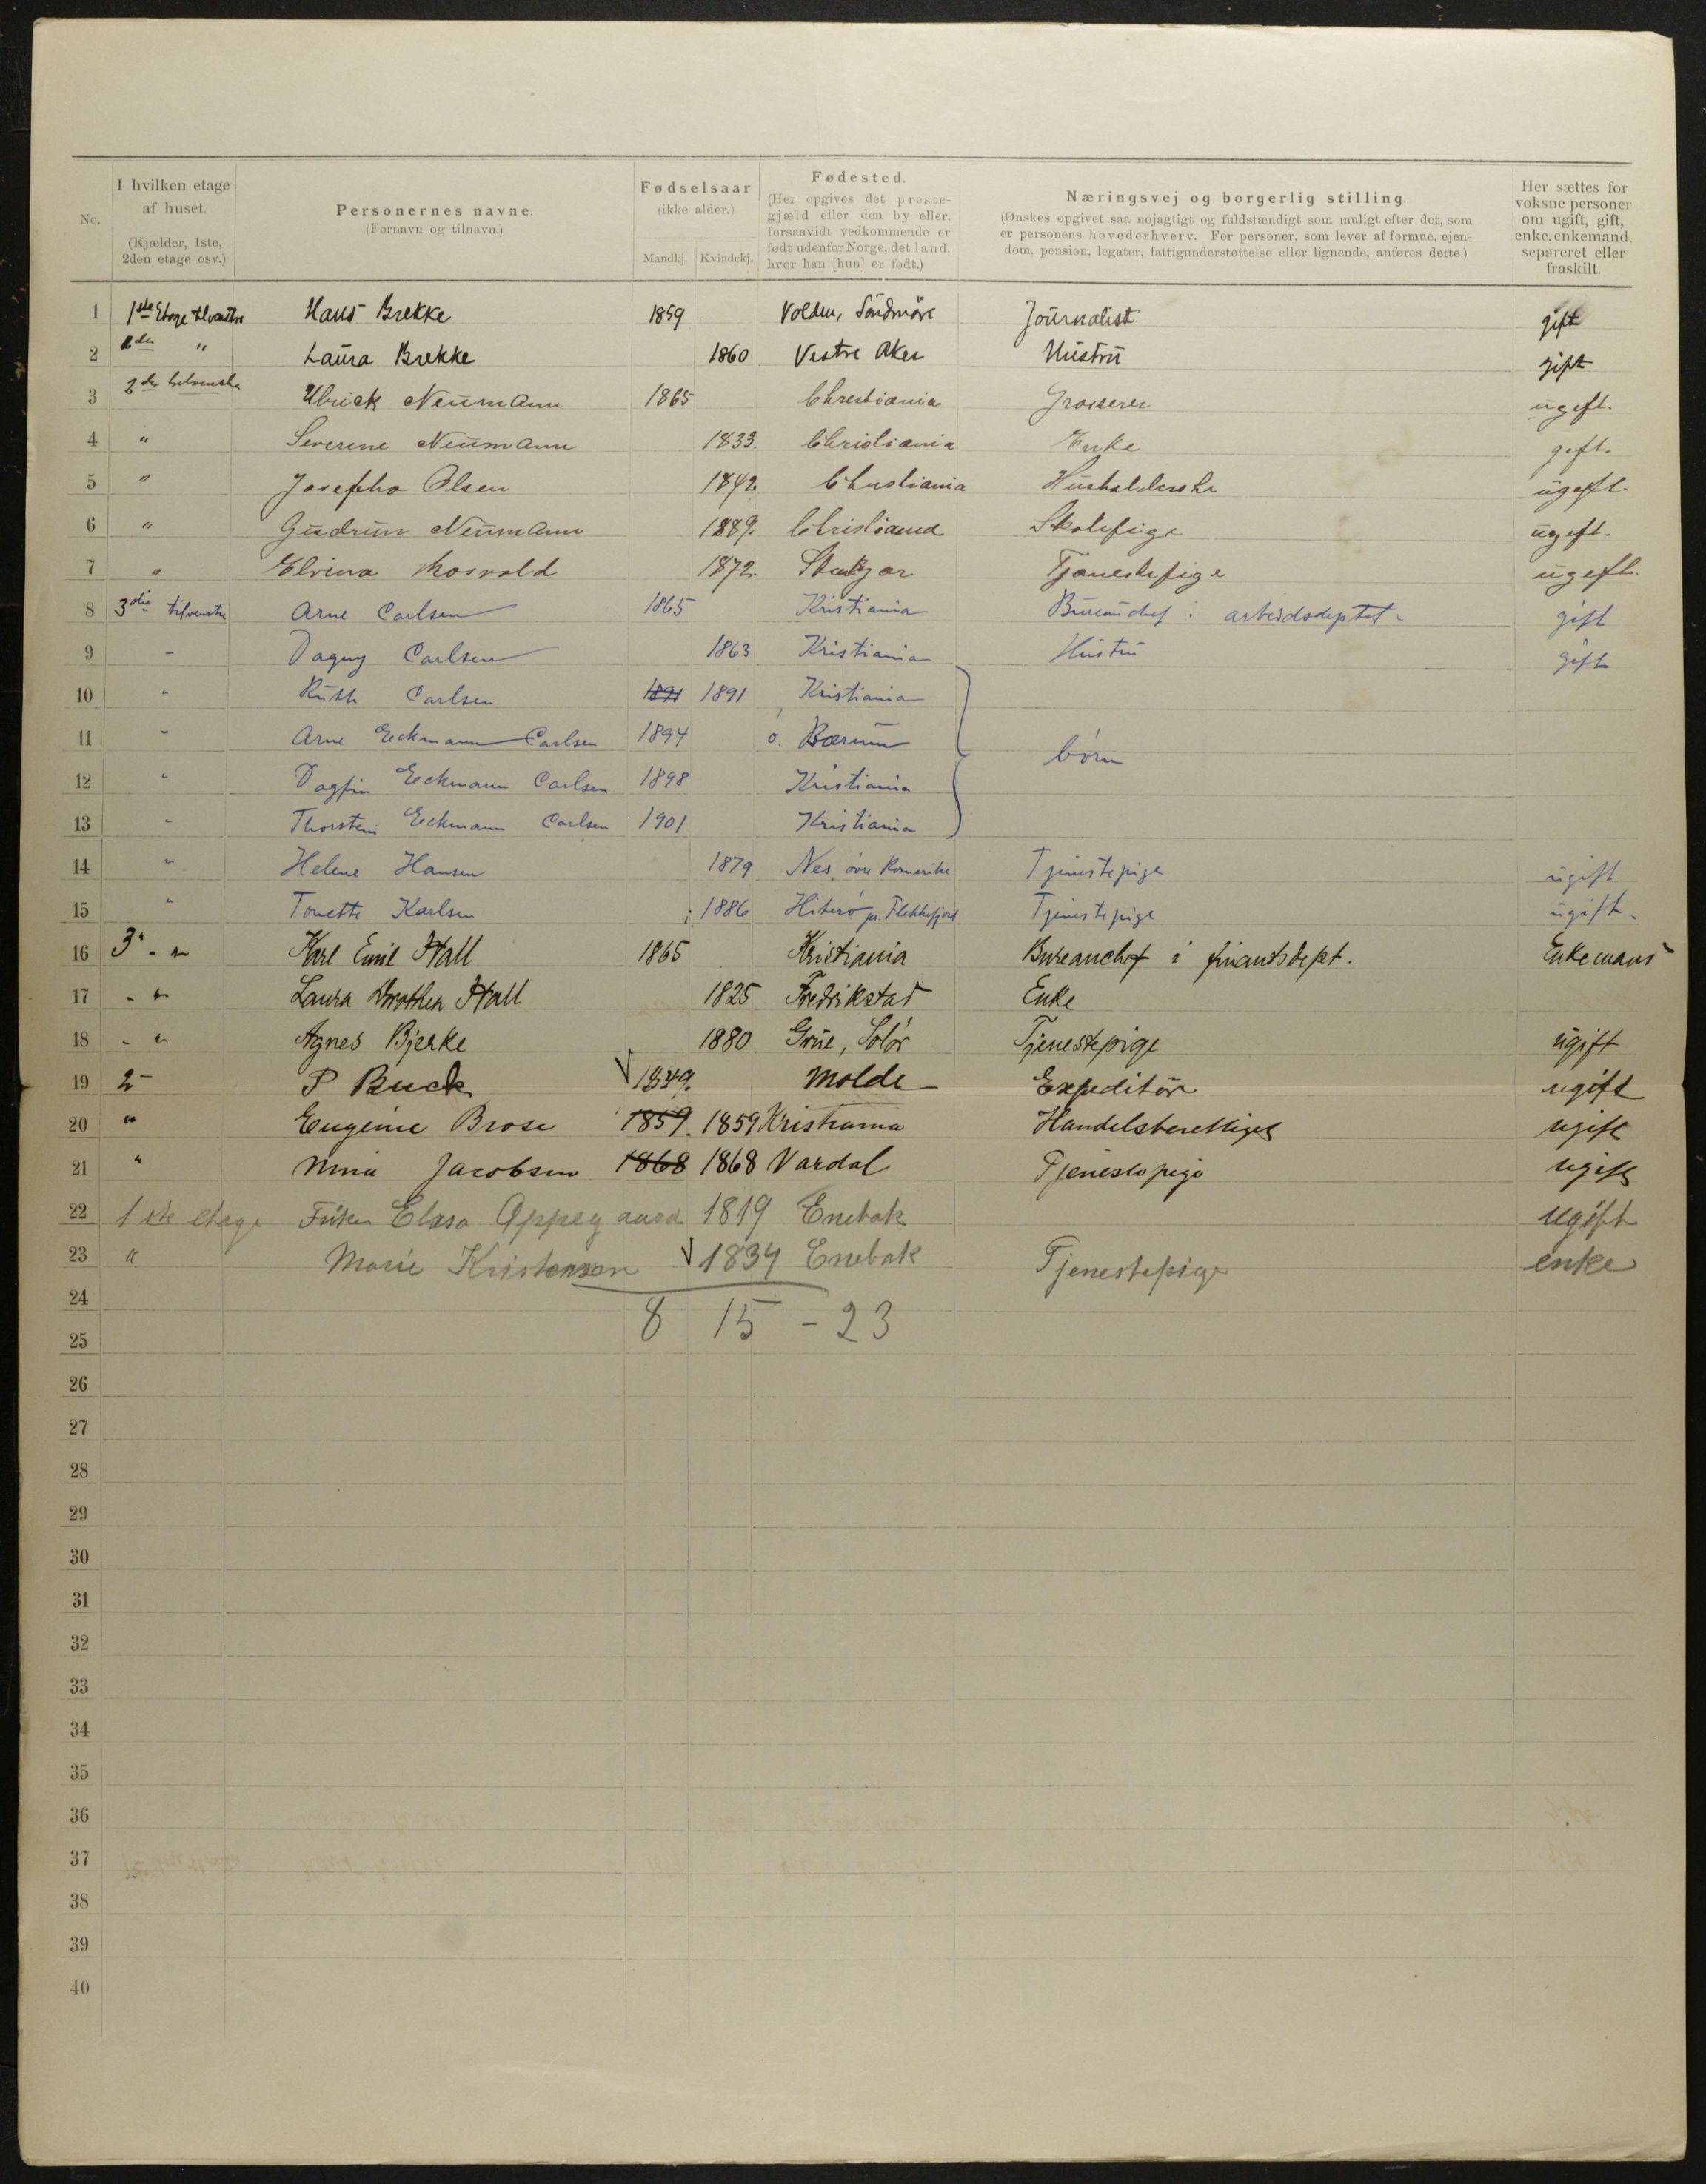 No.
I hvilken etage af huset. (Kjælder, 1ste, 2den etage osv.)
Personernes navne. (Fornavn og tilnavn.)
Fødselsaar (ikke alder.) Mandkj. Kvindekj.
Fødested. (Her opgives det prestegjæld eller den by eller, forsaavidt vedkommende er født udenfor Norge, det land, hvor han [hun] er født.)
Næringsvej og borgerlig stilling. (Ønskes opgivet saa nøjagtigt og fuldstændigt som muligt efter det, som er personens hovederhverv. For personer, som lever af formue, ejendom, pension, legater, fattigunderstøttelse eller lignende, anføres dette.)
Her sættes for voksne personer om ugift, gift, enke, enkemand, separeret eller fraskilt.
1 1ste Etage tilvenstre Hans Brekke 1859 Volden, Söndmöre Journalist gift
2 " Laura Brekke 1860 Vestre Aker Hustru gift
3 2de tilvenstre Ulrick Neumann 1865 Christiania Grosserer ugift.
4 " Severine Neumann 1833. Christiania Enke gift.
5 " Josepha Olsen 1842 Christiania Husholderske ugift.
6 " Gudrun Neumann 1889. Christiania Skolepige ugift.
7 " Elvina Mosvold 1872. Tjenestepige ugift.
8 3die tilvenstre Arne Carlsen 1865 Kristiania Bureauchef i arbeidsdeptet. gift
9 " Dagny Carlsen 1863 Kristiania Hustru gift
10 " Ruth Carlsen 1891 1891 Kristiania
11 " Arne Eckmann Carlsen 1894 ö. Bærum börn
12 " Dagfin Eckmann Carlsen 1898 Kristiania
13 " Thorstein Eckmann Carlsen 1901 Kristiania
14 " Helene Hansen 1879 Nes, övre Romerike Tjenestepige ugift
15 " Tonette Karlsen 1886 Hiterö pr. Flekkefjord Tjenestepige ugift.
16 3. - " Karl Emil Hall 1865 Kristiania Bureauchef i finantsdept. Enkemand
17 - " Laura Dorothea Hall 1825 Fredrikstad Enke
18 - " Agnes Bjerke 1880 Grue, Solör Tjenestepige ugift
19 2 - P Buck 1849. Molde Expeditör ugift
20 " Eugenie Brose 1859. 1859 Kristiania Handelsberettiget ugift
21 " Nina Jacobsen 1868 1868 Vardal Tjenestepige ugift
22 1ste etage Frøken Elisa Appegaard 1819 Enebak ugift
23 " Marie Kristensen 1834 Enebak Tjenestepige enke
24
8 15 - 23
25
26
27
28
29
30
31
32
33
34
35
36
37
38
39
40